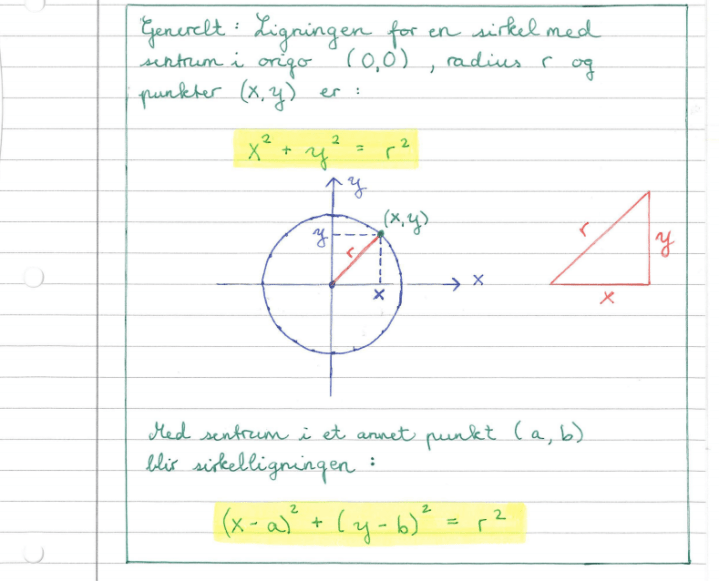 Generelt : Ligningen for en sirkel med
sentrum i origo (0,0) , radius r og
punkter (x,y) er :
x² + y² = r²
y
(x,y)
y
r
x
x
r
y
x
Med sentrum i et annet punkt (a, b)
blir sirkelligningen :
(x-a)² + (y-b)² = r²